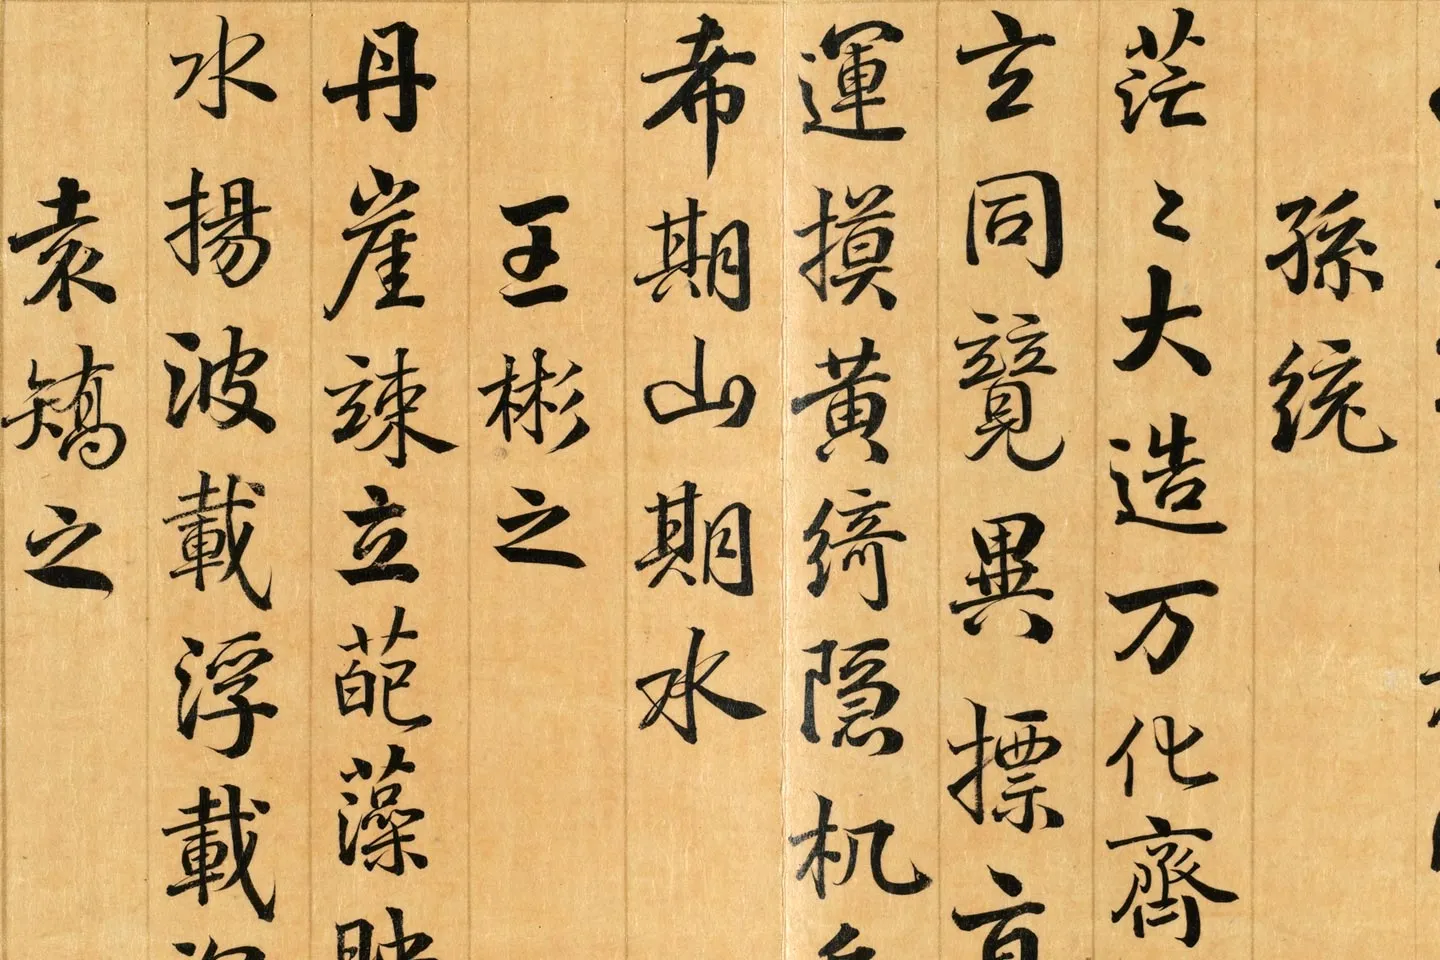 孫統
茫〻大造万化齊
立同覽異標
運摸黄綺隐机
希期山期水
王彬之
丹崖竦立葩藻映
水揚波載浮載
袁矯之